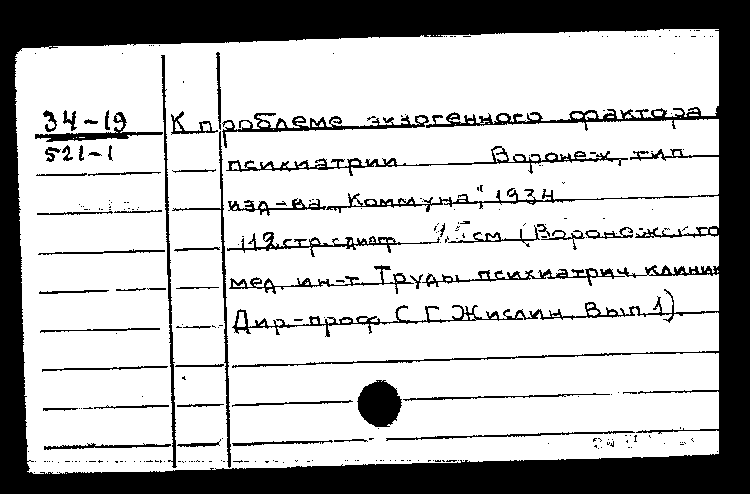 34-19
521-1
К проблеме экзогенного фактора в
психиатрии. Воронеж, тип.
изд-ва "Коммуна", 1934.
112 стр. с диагр. см. (Воронежского
мед. ин-т. Труды психиатрич. клиник
Дир.-проф С. Г. Жислин. Вып. 1).